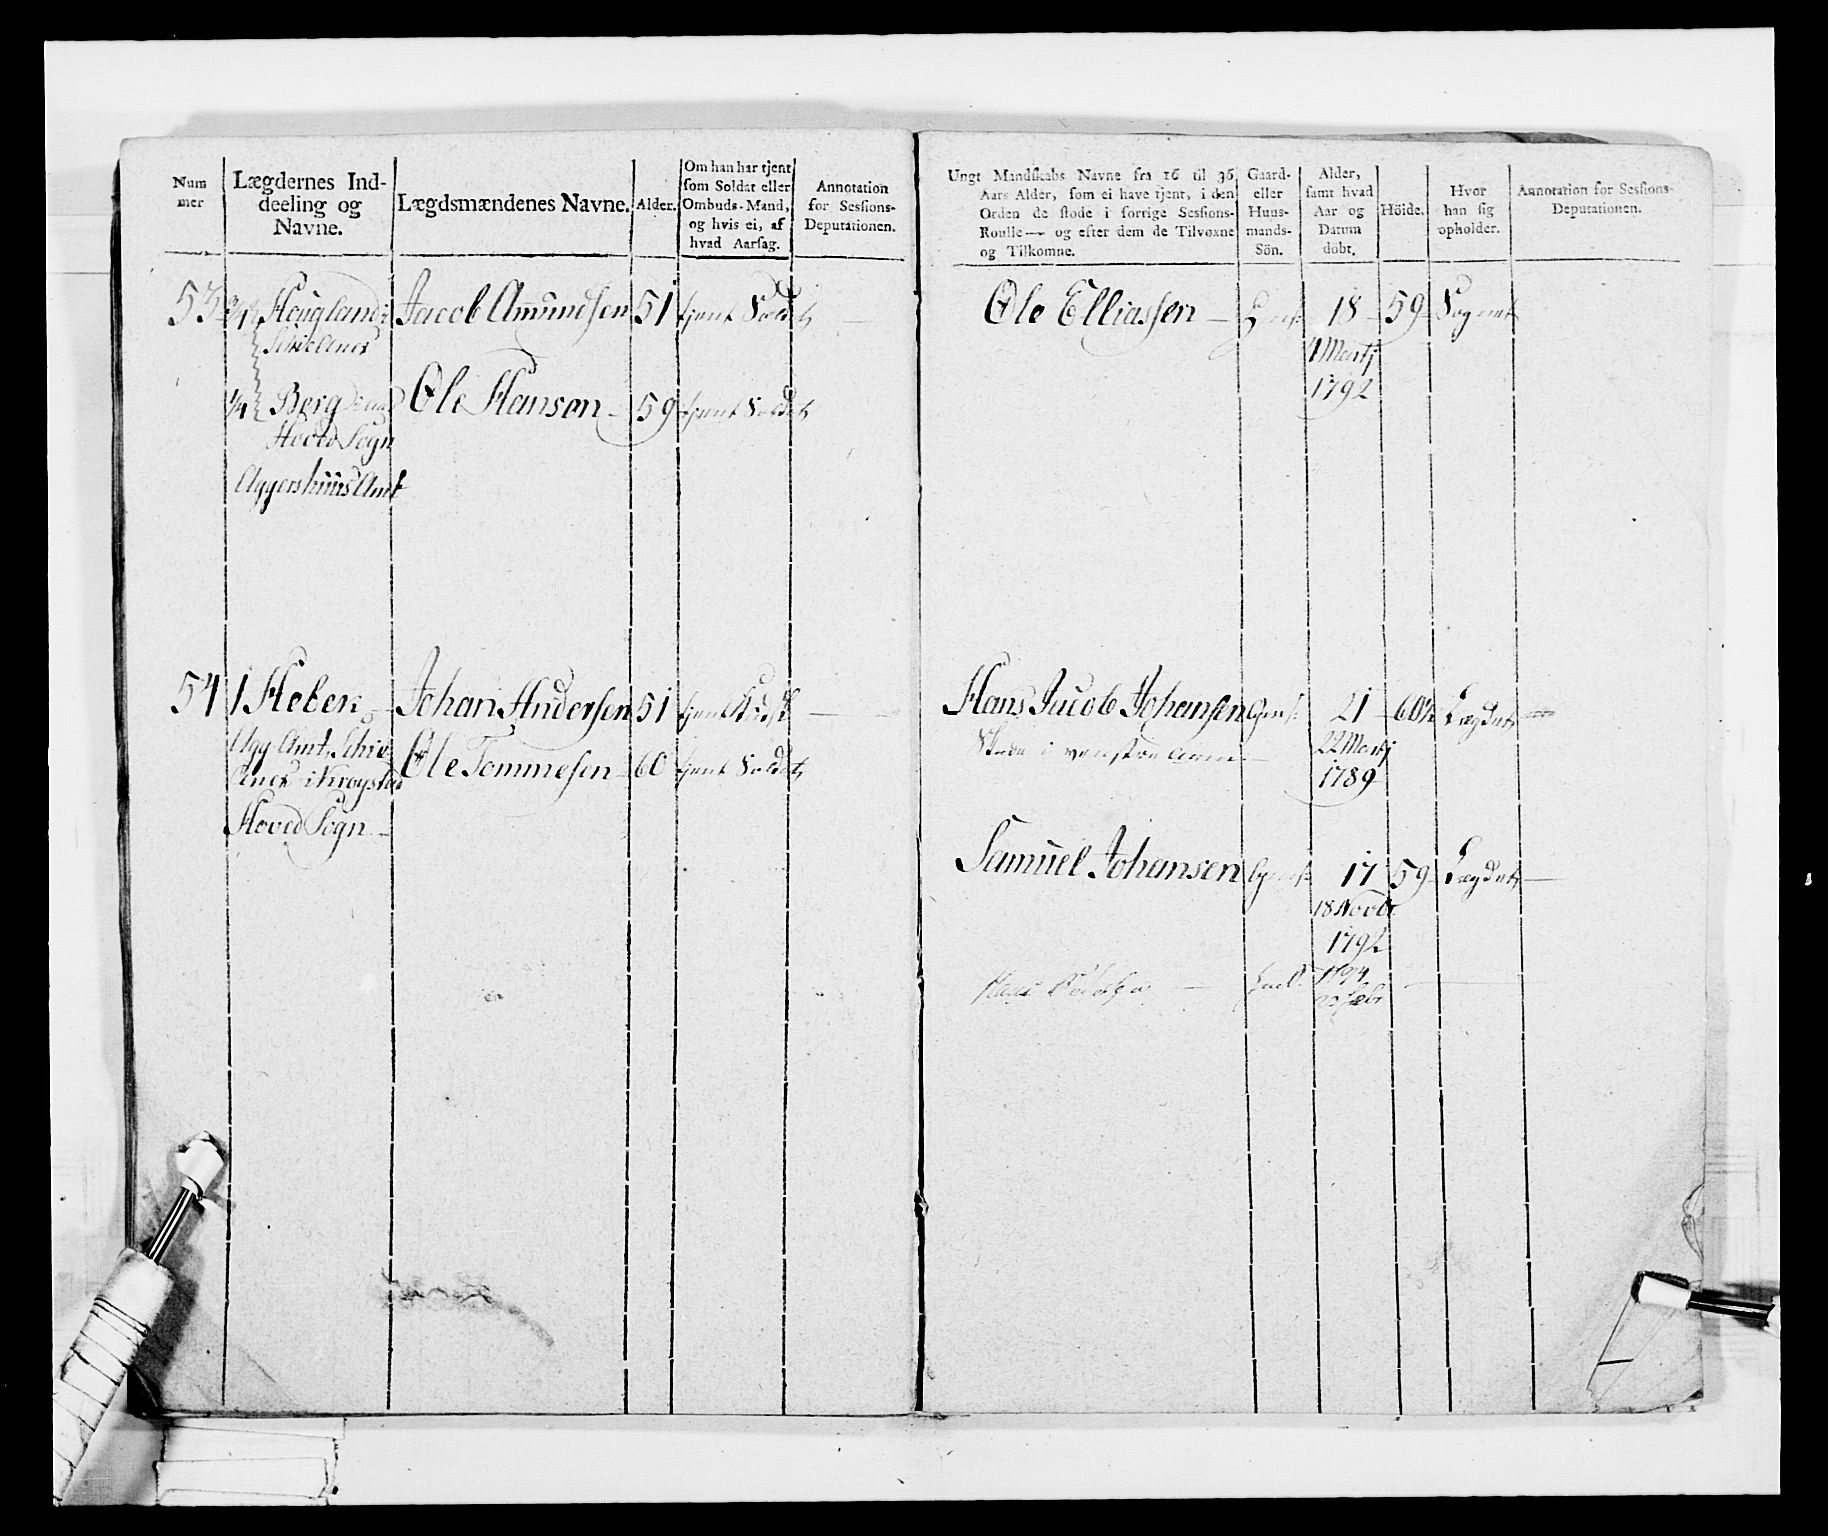 Num
mer
Lægdernes Ind-
deeling og
Navne.
Lægdsmændenes Navne.
Alder.
Om han har tjent
som Soldat eller
Ombuds-Mand,
og hvis ei, af
hvad Aarsag.
Annotation
for Sessions-
Deputationen.
53 3/4 Haugland i Jacob Amundsen 51 tjent Soldat
Schie Anex
1/4 Berg Ole Hansen 59 tjent Soldat
Hoved Sogn
Aggershuus Amt
54 1 Heben Johan Andersen 51 tjent
Agg Amt. Schie Ole Tommesen 60 tjent Soldat
Anex i Krogstad
Hoved Sogn
Ungt Mandskabs Navne fra 16 til 36
Aars Alder, som ei have tjent, i den
Orden de stode i forrige Sessions-
Roulle — og efter dem de Tilvoxne
og Tilkomne.
Gaard-
eller
Huus-
mands-
Sön.
Alder,
samt hvad
Aar og
Datum
döbt.
Höide.
Hvor
han sig
opholder.
Annotation for Sessions-
Deputationen.
Ole Elliassen 18 59 Sognet
1 Martj
1792
Hans Jacob Johansen 21 60½ Lægdet
Skade i venstre Arm 22 Martj
1789
Samuel Johansen 17 59 Lægdet
18 Novbr
1792
Hans 1794